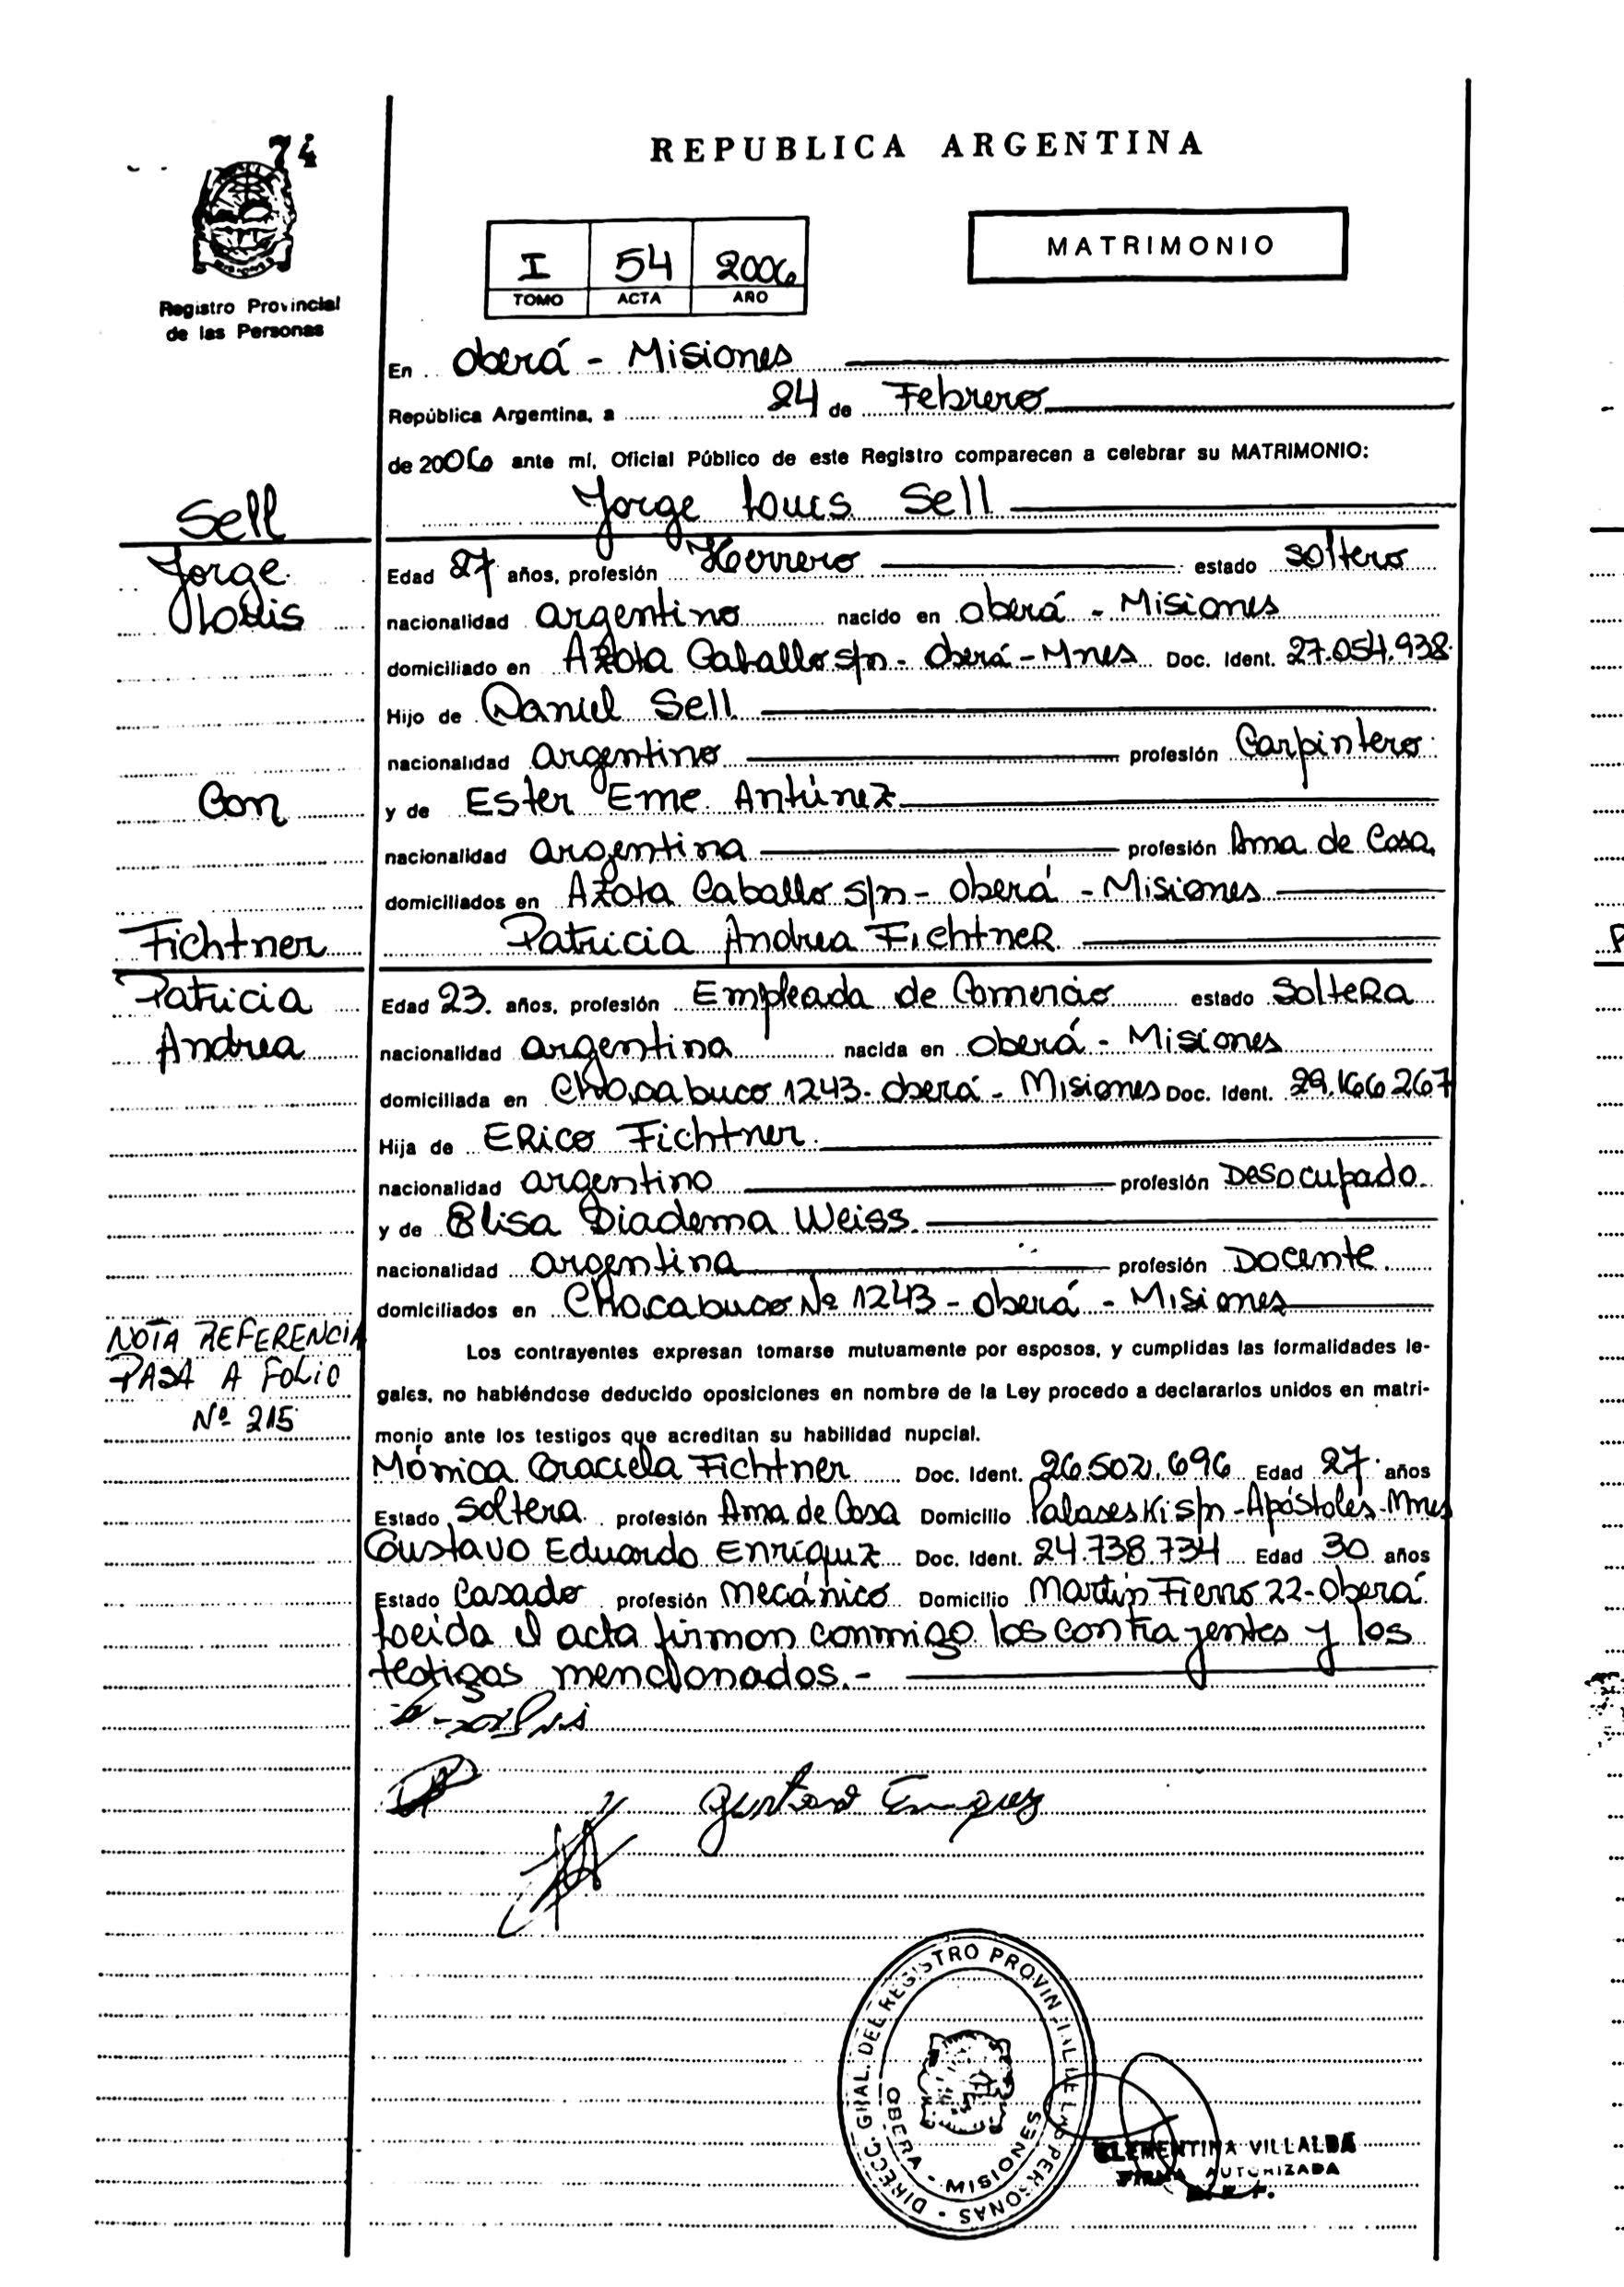 74
REPUBLICA ARGENTINA
MATRIMONIO
I 54 2006
TOMO ACTA AÑO
Registro Provincial
de las Personas
En Oberá - Misiones
República Argentina, a 24 de Febrero
de 2006 ante mí, Oficial Público de este Registro comparecen a celebrar su MATRIMONIO:
Sell
Jorge Louis Sell
Jorge
Louis
Edad 27 años, profesión Herrero estado Soltero
nacionalidad argentino nacido en Oberá - Misiones
domiciliado en Azota Caballo s/n - Oberá - Mnes Doc. Ident. 27.054.938
Hijo de Daniel Sell
nacionalidad argentino profesión Carpintero
Con
y de Ester Eme Antúnez
nacionalidad argentina profesión Ama de Casa
domiciliados en Azota Caballo s/n - Oberá - Misiones
Fichtner
Patricia Andrea Fichtner
Patricia
Andrea
Edad 23 años, profesión Empleada de Comercio estado Soltera
nacionalidad argentina nacida en Oberá - Misiones
domiciliada en Chacabuco 1243 - Oberá - Misiones Doc. Ident. 29.166.267
Hija de Erico Fichtner
nacionalidad argentino profesión Desocupado
y de Elisa Diadema Weiss
nacionalidad argentina profesión Docente
domiciliados en Chacabuco Nº 1243 - Oberá - Misiones
NOTA REFERENCIA
PASA A FOLIO
Nº 215
Los contrayentes expresan tomarse mutuamente por esposos, y cumplidas las formalidades le-
gales, no habiéndose deducido oposiciones en nombre de la Ley procedo a declararlos unidos en matri-
monio ante los testigos que acreditan su habilidad nupcial.
Mónica Graciela Fichtner Doc. Ident. 26.502.696 Edad 27 años
Estado Soltera profesión Ama de Casa Domicilio Palaseski s/n - Apóstoles - Mnes
Gustavo Eduardo Enríquez Doc. Ident. 24.738.734 Edad 30 años
Estado Casado profesión Mecánico Domicilio Martín Fierro 22 - Oberá
Leída el acta firman conmigo los contrayentes y los
testigos mencionados.-
Gustavo Enriquez
DIRECC. GRAL. DEL REGISTRO PROVINCIAL DE LAS PERSONAS
OBERA - MISIONES
CLEMENTINA VILLALBA
FIRMA AUTORIZADA